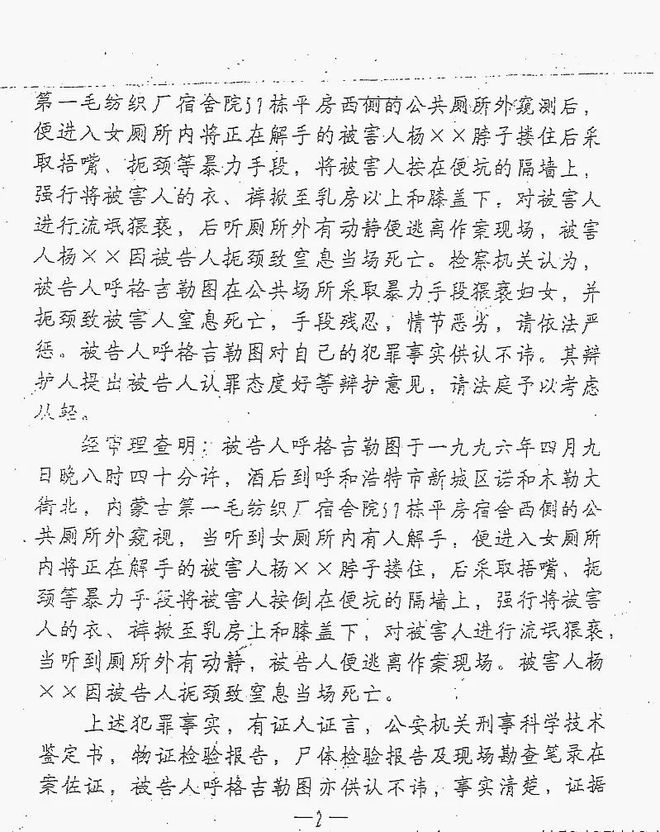 第一毛纺织厂宿舍院57栋平房西侧的公共厕所外窥测后，
便进入女厕所内将正在解手的被害人杨××脖子搂住后采
取捂嘴、扼颈等暴力手段，将被害人按在便坑的隔墙上，
强行将被害人的衣、裤掀至乳房以上和膝盖下，对被害人
进行流氓猥亵，后听厕所外有动静便逃离作案现场，被害
人杨××因被告人扼颈致窒息当场死亡。检察机关认为，
被告人呼格吉勒图在公共场所采取暴力手段猥亵妇女，并
扼颈致被害人窒息死亡，手段残忍，情节恶劣，请依法严
惩。被告人呼格吉勒图对自己的犯罪事实供认不讳。其辩
护人提出被告人认罪态度好等辩护意见，请法庭予以考虑
从轻。
经审理查明：被告人呼格吉勒图于一九九六年四月九
日晚八时四十分许，酒后到呼和浩特市新城区诺和木勒大
街北，内蒙古第一毛纺织厂宿舍院57栋平房宿舍西侧的公
共厕所外窥视，当听到女厕所内有人解手，便进入女厕所
内将正在解手的被害人杨××脖子搂住，后采取捂嘴、扼
颈等暴力手段将被害人按倒在便坑的隔墙上，强行将被害
人的衣、裤掀至乳房上和膝盖下，对被害人进行流氓猥亵，
当听到厕所外有动静，被告人便逃离作案现场。被害人杨
××因被告人扼颈致窒息当场死亡。
上述犯罪事实，有证人证言，公安机关刑事科学技术
鉴定书，物证检验报告，尸体检验报告及现场勘查笔录在
案佐证，被告人呼格吉勒图亦供认不讳，事实清楚，证据
—2—